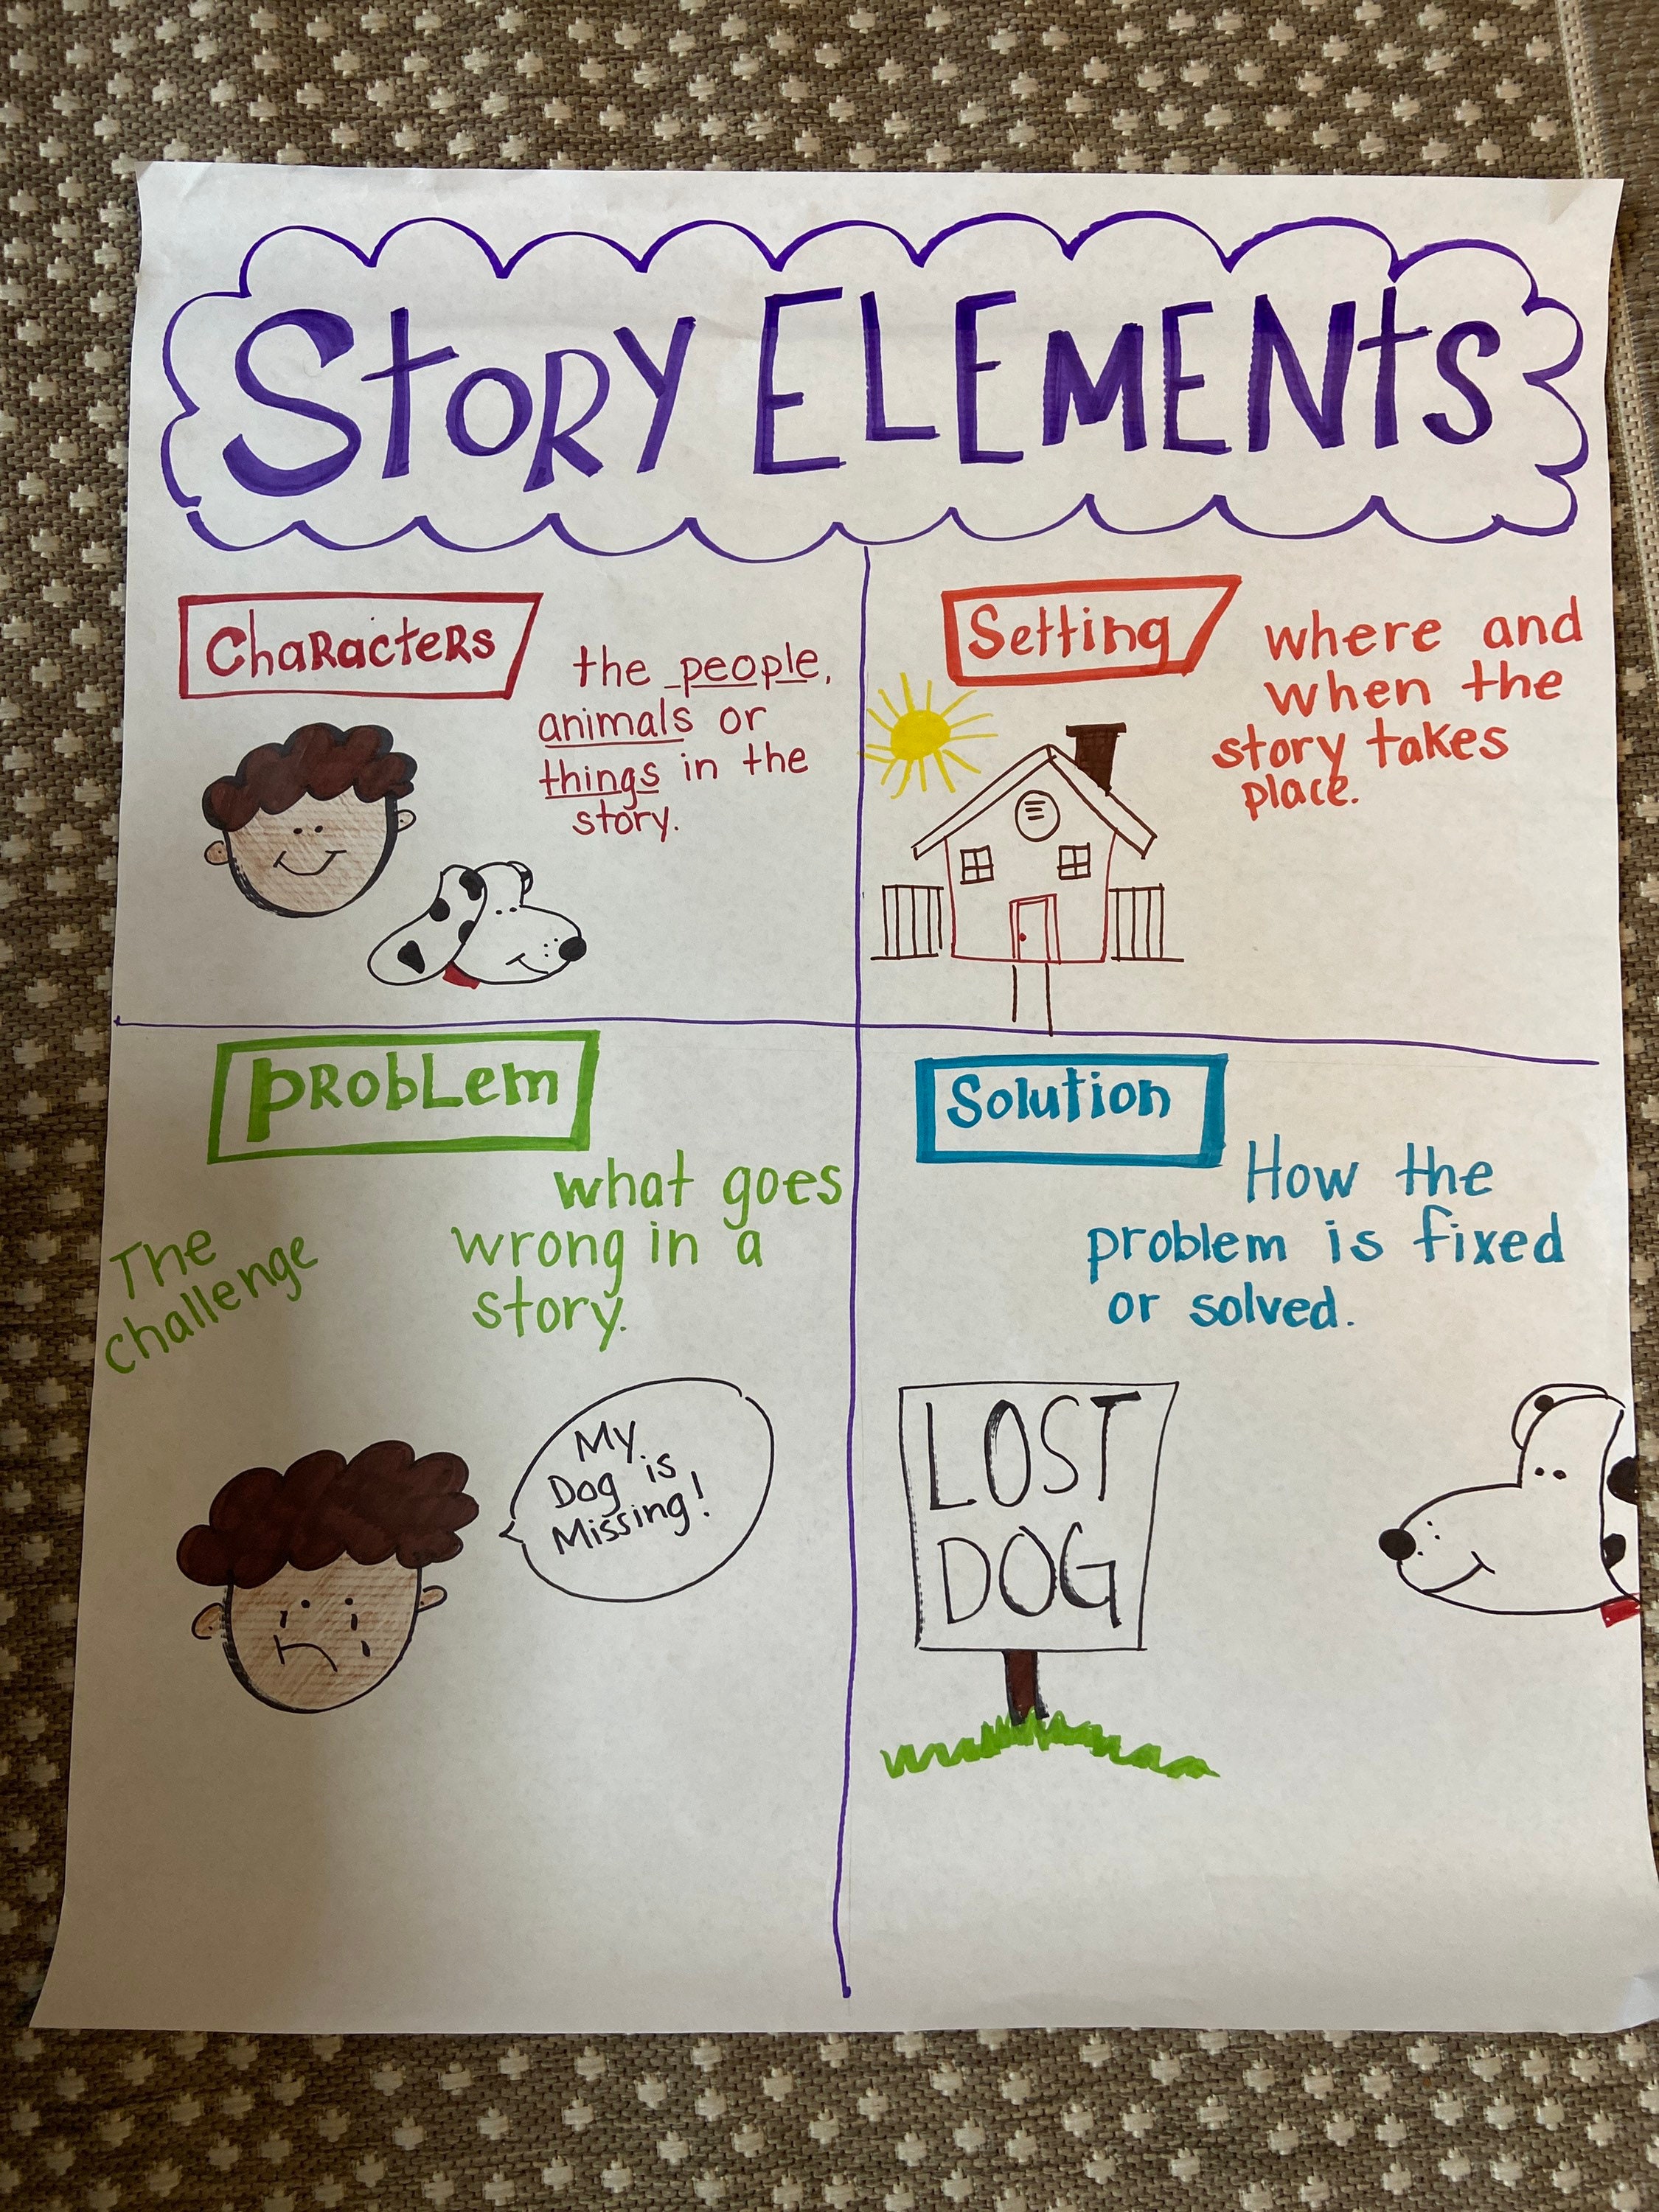 StoRY ELEMENtS
ChaRacteRs
the people,
animals or
things in the
story.
Setting
where and
when the
story takes
place.
PRobLem
what goes
wrong in a
story.
The
challenge
My
Dog is
Missing!
Solution
How the
problem is fixed
or solved.
LOST
DOG